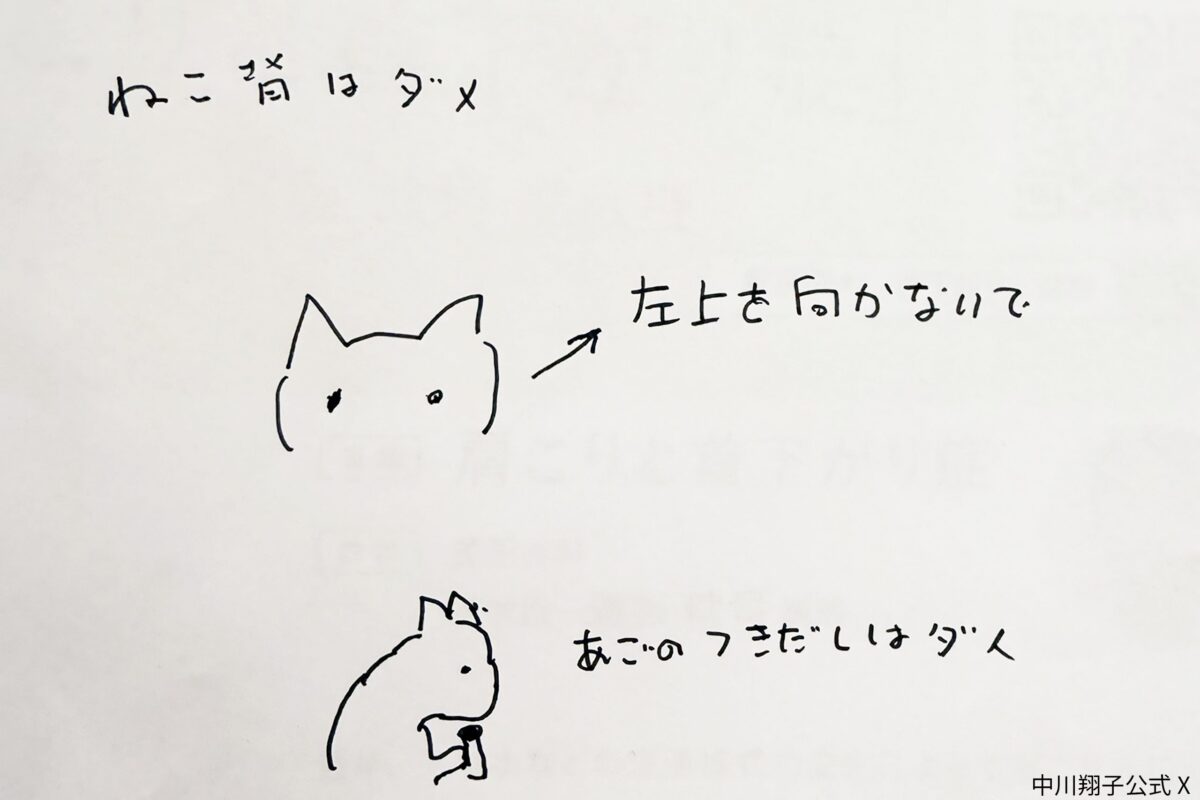 ねこ背はダメ
左上を向かないで
あごのつきだしはダメ
中川翔子公式 X